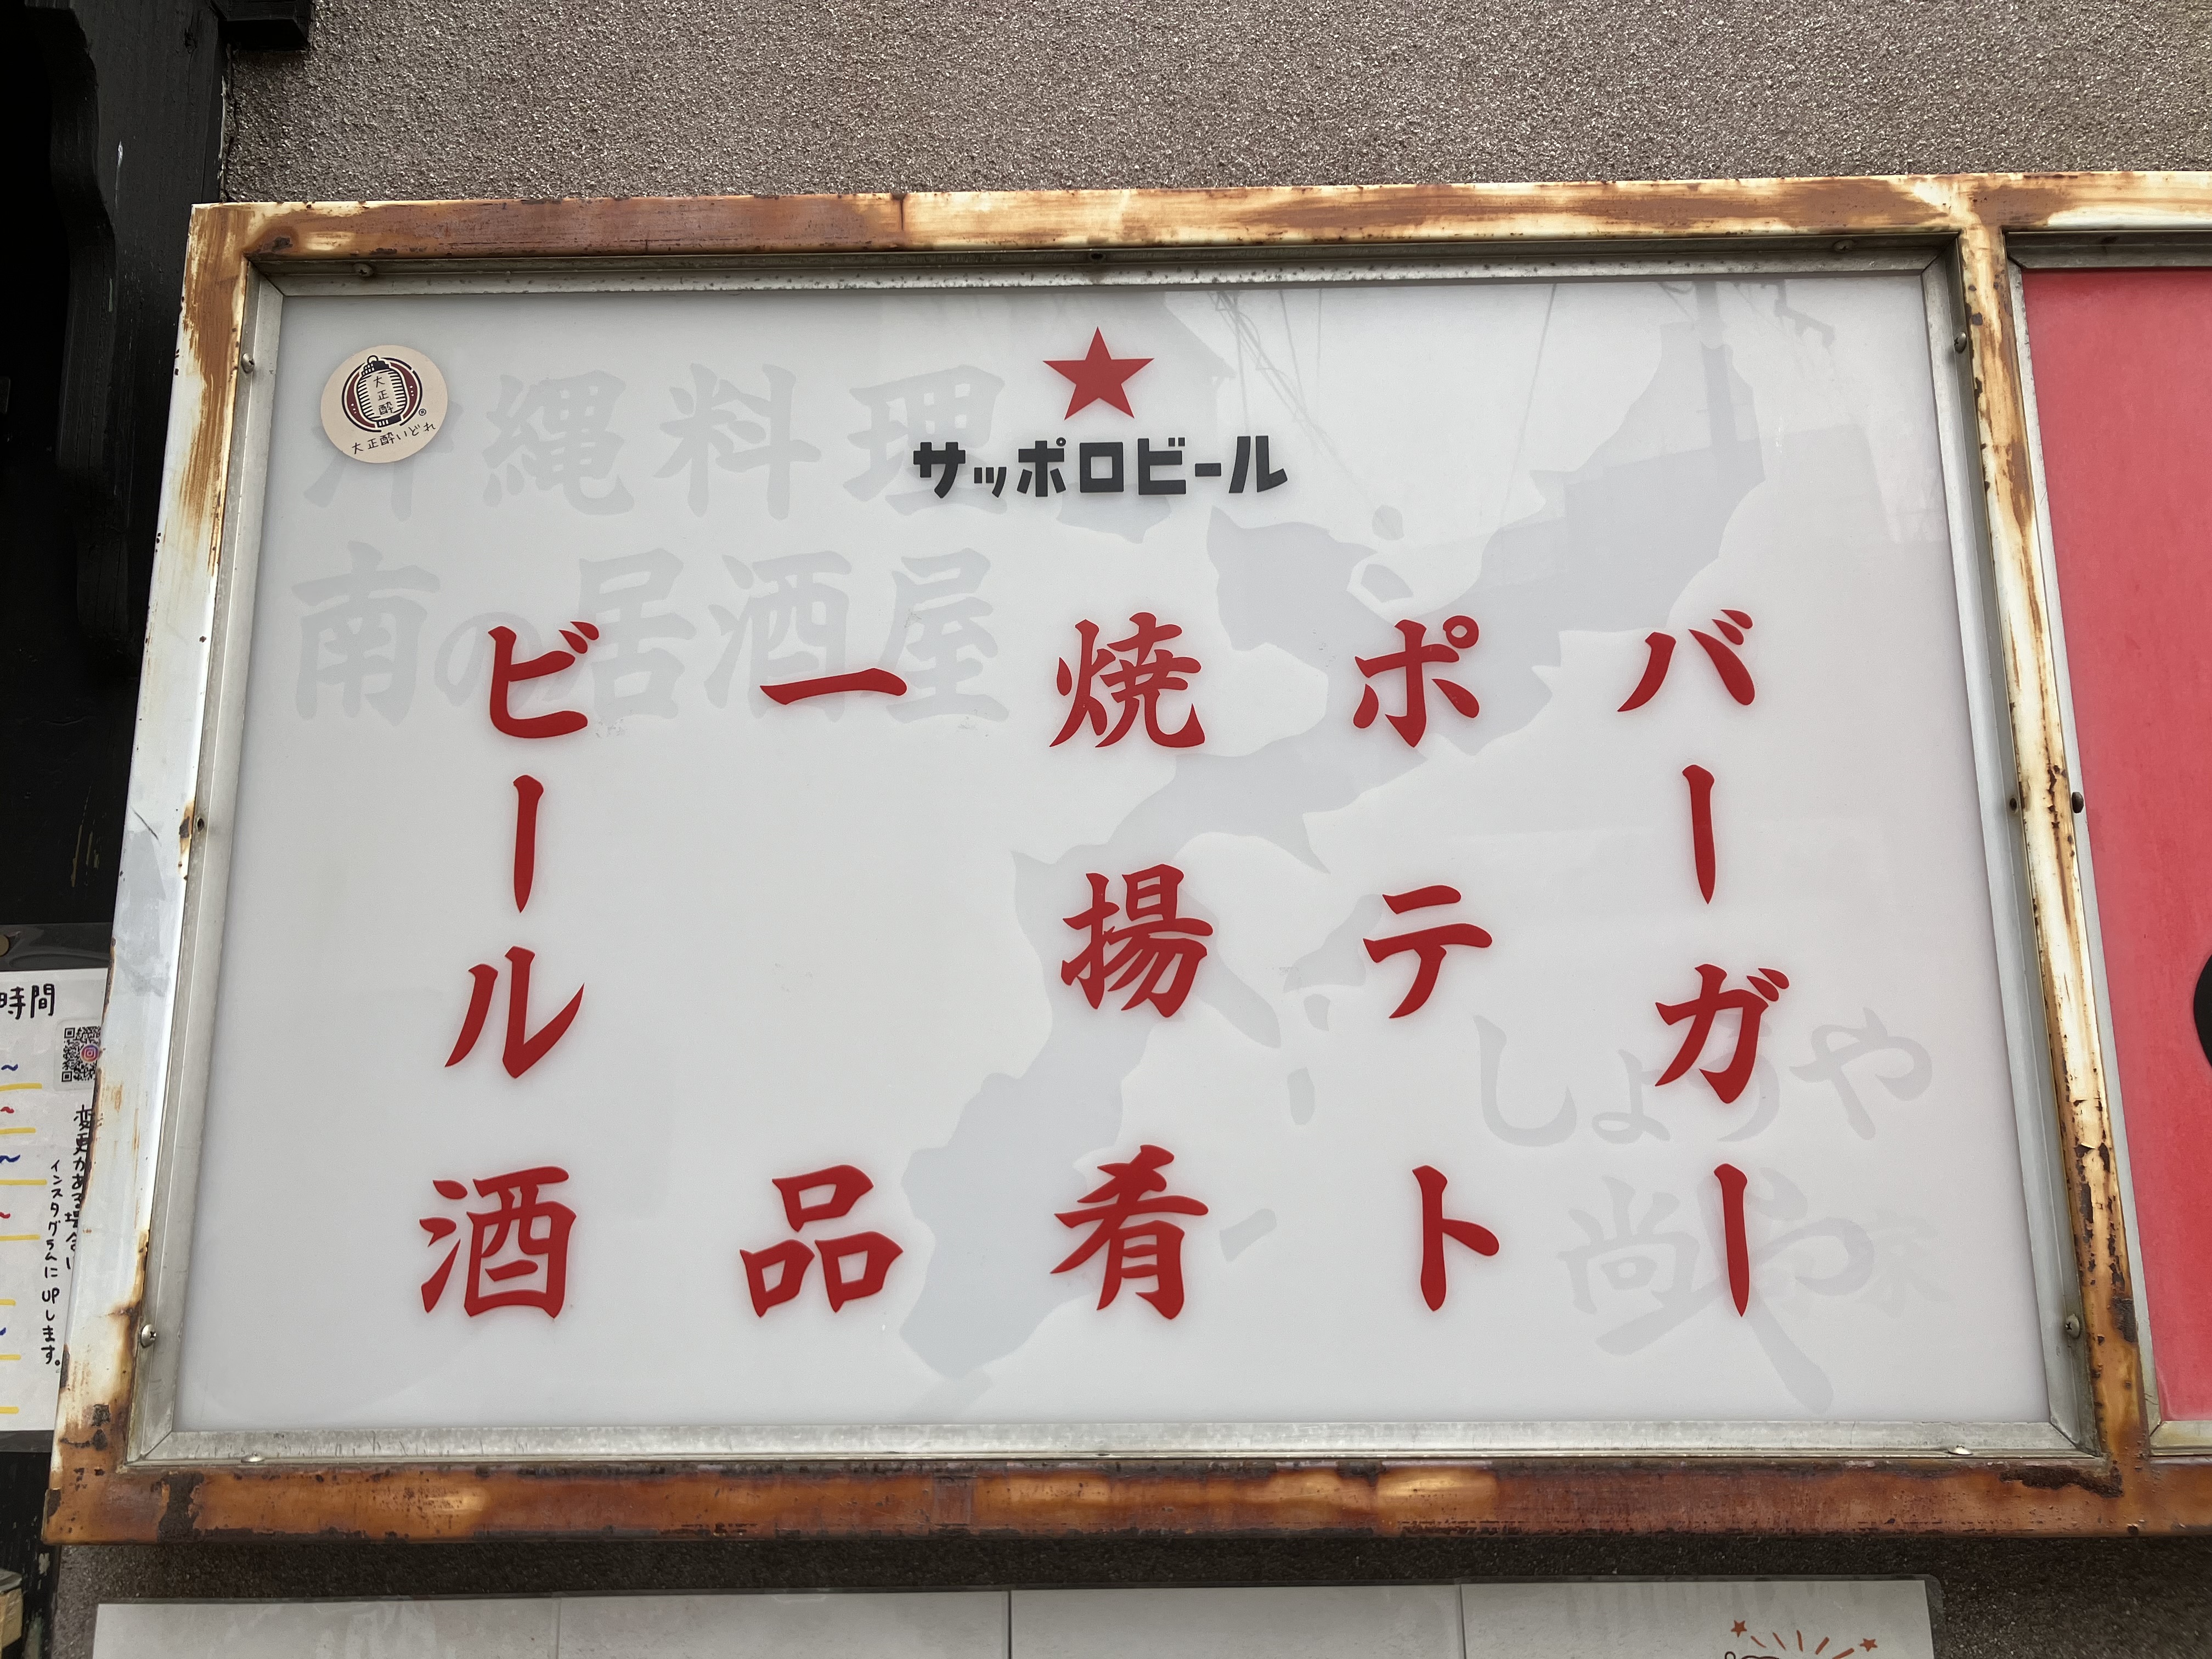 サッポロビール
バーガー
ポテト
焼揚肴
一品
ビール酒
大正酔
大正酔いどれ
沖縄料理
南の居酒屋
しょうや
時間
変更がある場合は
インスタグラムにUPします。